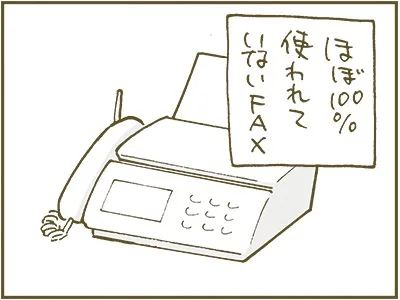 ほぼ100%
使われて
いないFAX